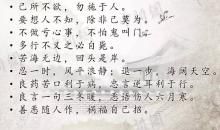 • 己所不欲，勿施于人。
• 要想人不知，除非己莫为。
• 不做亏心事，不怕鬼叫门。
• 多行不义之必自毙。
• 苦海无边，回头是岸。
• 忍一时，风平浪静；退一步，海阔天空。
• 良药苦口利于病，忠言逆耳利于行。
• 良言一句三冬暖，恶语伤人六月寒。
• 善恶随人作，祸福自己招。